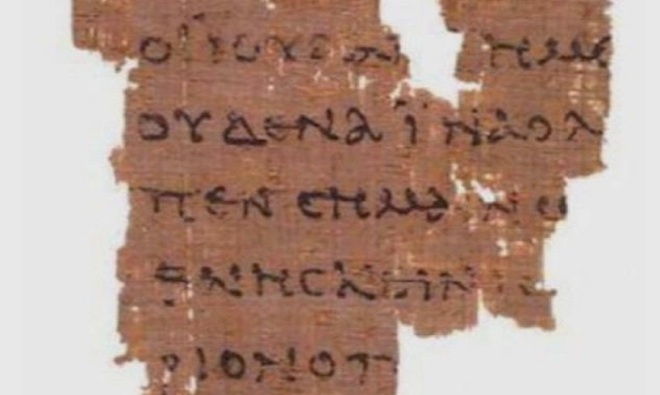 ΟΙ ΙΟΥΔΑΙ ΗΜΕ
ΟΥΔΕΝΑ ΪΝΑ Ο Λ
ΠΕΝ ϹΗΜΑΙΝΩ
ΘΝΗϹΚΕΙΝ ΙϹ
ΡΙΟΝ Ο Π